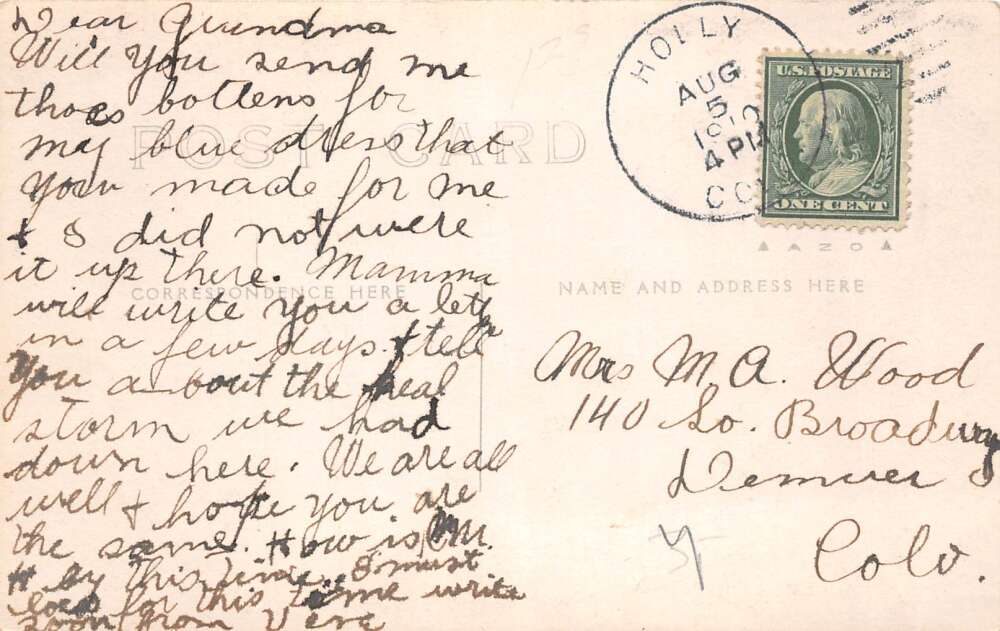 Dear Grandma
Will you send me
thoes bottens for
may blue dress that
your made for me
+ I did not were
it up there. Mamma
will write you a letter
in a few days + tell
you a-bout the heal
storm we had
down here. We are all
well + hope you are
the same. How is M.
H by this time. I must
for this time write
soon from Vera
POST CARD
CORRESPONDENCE HERE
HOLLY
AUG
5
1910
4 PM
COLO
U.S. POSTAGE
ONE CENT
AZO
NAME AND ADDRESS HERE
Mrs M. A. Wood
140 So. Broadway
Denver
Colo.